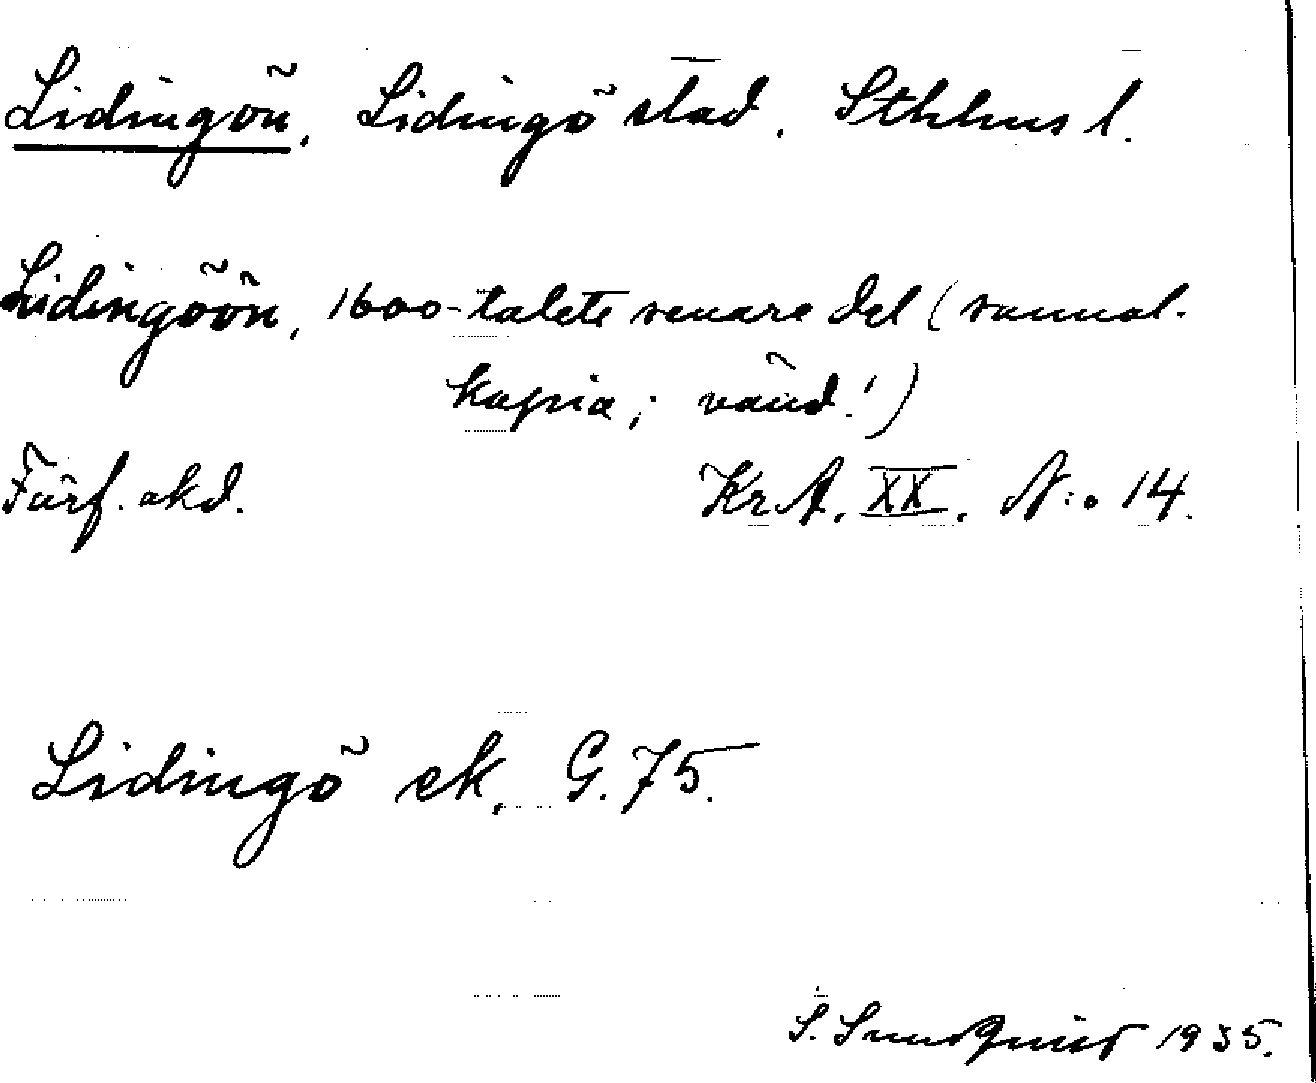 Lidingön, Lidingö stad, Sthlms l.
Lidingöön, 1600-talets senare del (samml.
kopia; vänd!)
Förf. okd. Kr.A. XX. N:o 14.
Lidingö ek. G.75.
S. Sundquist 1935.